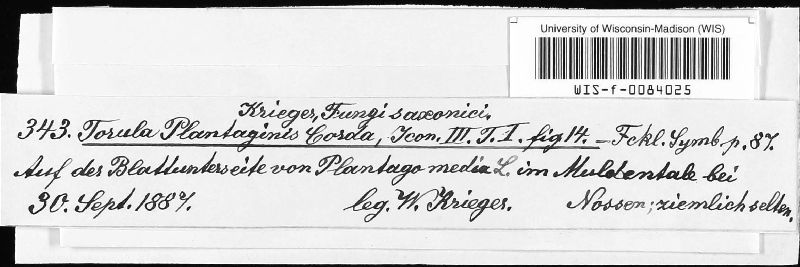 University of Wisconsin-Madison (WIS)
WIS-f-0084025
Krieger, Fungi saxonici.
343. Torula Plantaginis Corda, Icon. III. T. I. fig 14. – Fckl. Symb. p. 87.
Auf der Blattunterseite von Plantago media L. im Muldentale bei
30. Sept. 1887. leg. W. Krieger. Nossen; ziemlich selten.